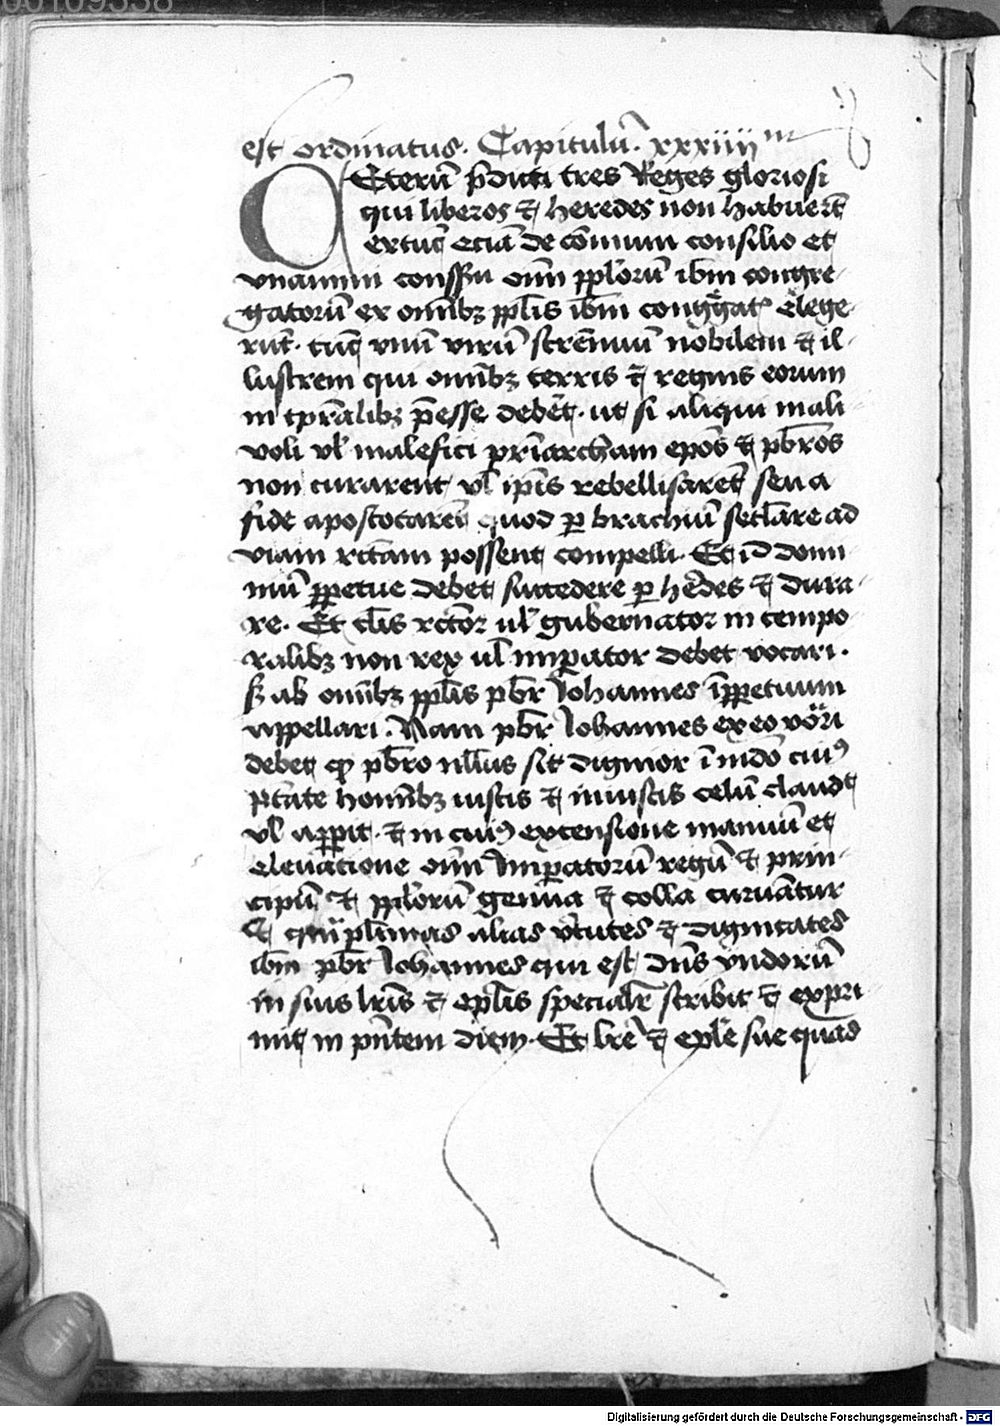 00109338
est ordinatus. Capitulū. xxxiiij m
CEterū p̄dicti tres Reges gloriosi
qui liberos et heredes non habuerūt
extūc eciā de cōmuni consilio et
vnanimi consensu om̄ pplorū ibm congre-
gatorū ex omībꝫ pplis ibm congregatis elege-
rūt. tūc vnū virū strēnuū nobilem et il-
lustrem qui omībꝫ terris et regnis eorum
in tp̄ralibꝫ p̄esse debēt. ut si aliqui mali
voli vl malefici pr̄iarcham ep̄os et pb̄ros
non curarent vl ip̄is rebellisarēt seu a
fide apostotarēt quod ꝑ brachiū seclare ad
viam rc̄tam possent compelli. Et id domi
niū ꝑpetue debet succedere ꝑ hēdes et dura-
re. Et rc̄tor ul gubernator in tempo-
ralibꝫ non rex ul imꝑator debet vocari.
sꝫ ab omībꝫ pplis pbr Iohannes īꝑpetuum
appellari. Nam pbr Iohannes ex eo vocari
debet qꝫ pb̄ro nullus sit dignior ī mūdo cuiꝰ
ptāte homībꝫ iustis et iniustis celū claudit
vl aꝑit. et in cuiꝰ extensione manuū et
elevacione om̄ Imꝑatorū regū et prin-
cipū et pplorū genua et colla curvātur
Et plimas alias v̄tutes et dignitates
ibm pbr Iohannes qui est dn̄s yndorū
in suis lr̄is et epl̄is specialr scribit et expri-
mit in pn̄tem diem. Et lr̄e et epl̄e sue quas
Digitalisierung gefördert durch die Deutsche Forschungsgemeinschaft - DFG